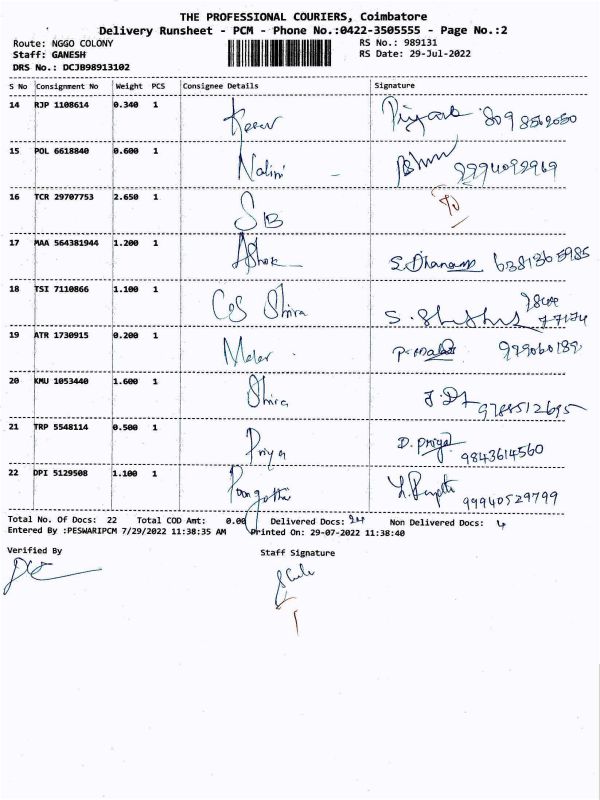 THE PROFESSIONAL COURIERS, Coimbatore
Delivery Runsheet - PCM - Phone No.:0422-3505555 - Page No.:2
Route: NGGO COLONY RS No.: 989131
Staff: GANESH RS Date: 29-Jul-2022
DRS No.: DCJB98913102
S No Consignment No Weight PCS Consignee Details Signature
14 RJP 1108614 0.340 1
15 POL 6618840 0.600 1 Nalini 9994092969
16 TCR 29707753 2.650 1 SIB
17 MAA 564381944 1.200 1 Ashok S. Dhanam 6381365985
18 TSI 7110866 1.100 1 Shira
19 ATR 1730915 0.200 1
20 KMU 1053440 1.600 1 Shira
21 TRP 5548114 0.500 1 Priya D. Priya 9843614560
22 DPI 5129508 1.100 1 99940529799
Total No. Of Docs: 22 Total COD Amt: 0.00 Delivered Docs: Non Delivered Docs: 4
Entered By :PESWARIPCM 7/29/2022 11:38:35 AM Printed On: 29-07-2022 11:38:40
Verified By Staff Signature